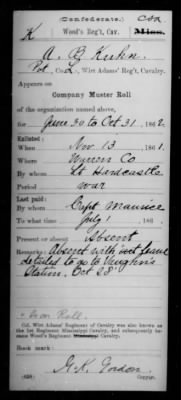 (Confederate.)
CSA
K Wood's Reg't, Cav. Miss.
A. B. Kuhn
Pvt, Co. , Wirt Adams' Reg't, Cavalry.
Appears on
Company Muster Roll
of the organization named above,
for June 30 to Oct 31, 1862
Enlisted:
When Nov 13 1861.
Where Warren Co
By whom Lt Hardcastle
Period war
Last paid:
By whom Capt Maurice
To what time July 1 186 .
Present or absent Absent
Remarks: Absent with
detailed to go to Vaughn's
Station, Oct 28
Roll.
Col. Wirt Adams' Regiment of Cavalry was also known as the
1st Regiment Mississippi Cavalry, and subsequently be-
came Wood's Regiment Cavalry.
Book mark:
G. K. Gordon
(636) Copyist.